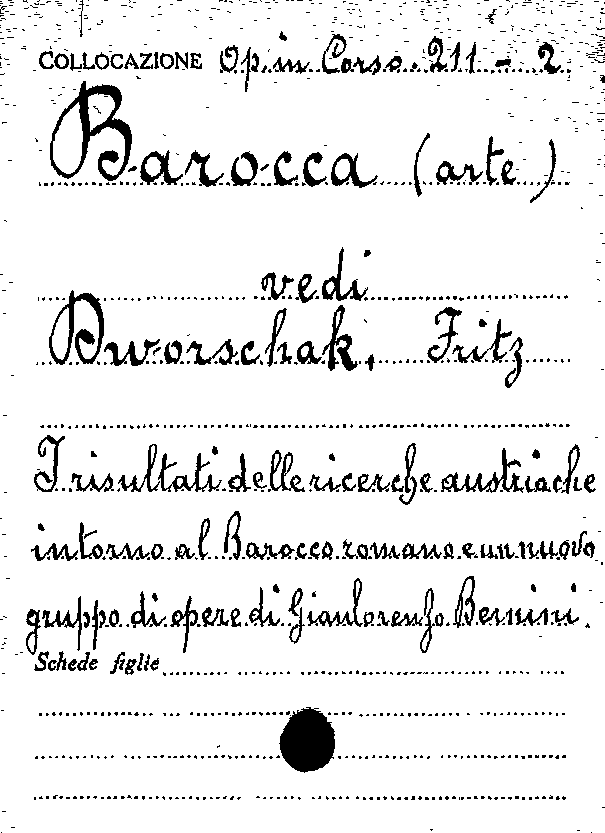 COLLOCAZIONE Op. in Corso. 211 - 2
Barocca (arte)
vedi
Dworschak, Fritz
I risultati delle ricerche austriache
intorno al Barocco romano e un nuovo
gruppo di opere di Gianlorenzo Bernini.
Schede figlie